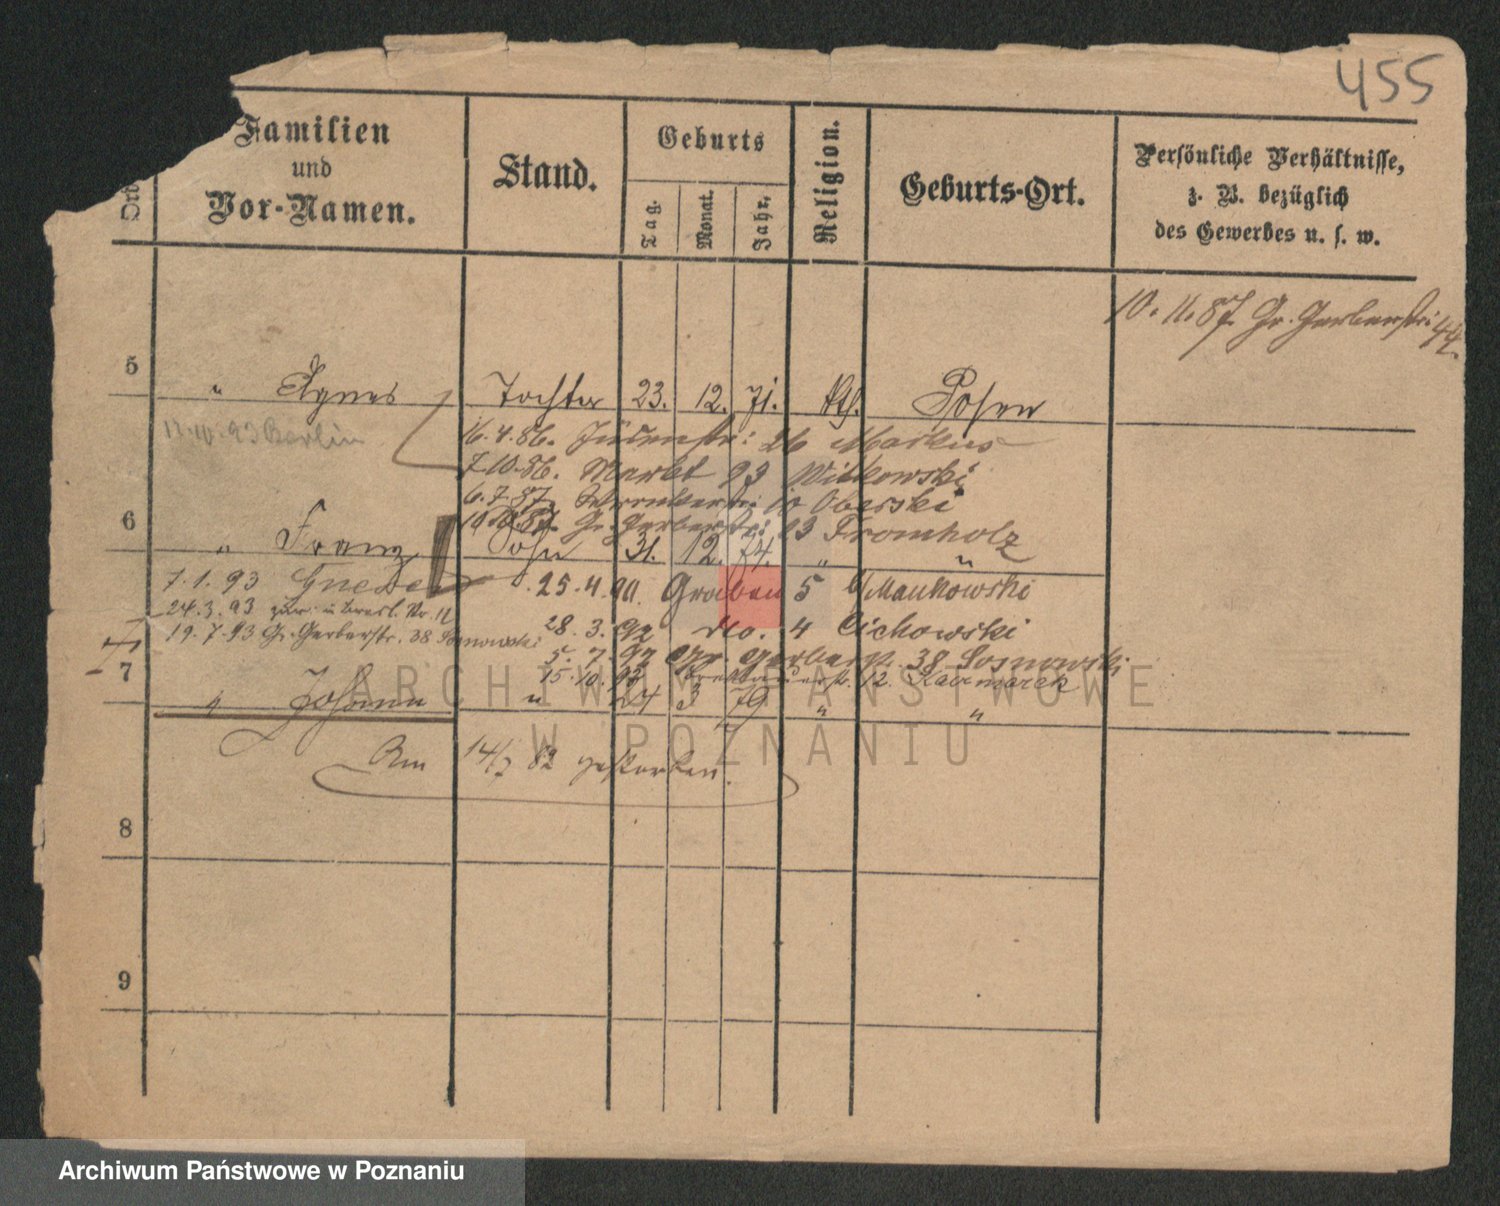 455
Familien
und
Vor-Namen.
Stand.
Geburts
Tag.
Monat.
Jahr.
Religion.
Geburts-Ort.
Persönliche Verhältnisse,
z. B. bezüglich
des Gewerbes u. s. w.
10.11.87. Gr. Gerberstr: 44.
5
" Agnes Tochter 23. 12. 71. Kth. Posen
17.10.93 Berlin
16.4.86. Judenstr: 26 Markus
7.10.86. Markt 93 Witkowski
6.7.87. 10 Oberski
10.10.87. Gr. Gerberstr: 23 Fromholz
6
" Franz Sohn 31. 12. 74. " "
7.1.93 Gnesen
25.4.90. Graben 5 Mankowski
24.3.93 zur. v. Bresl. Nr. 12
28.3.92 do. 4 Cichowski
19.7.93 Gr. Gerberstr. 38 Sosnowski
5.7.92 Gr. Gerberstr. 38 Sosnowski
15.10.92 12. Kaczmarek
7
" Johann " 24 5 79 " "
Am 14/7 82 gestorben.
8
9
ARCHIWUM PAŃSTWOWE
W POZNANIU
Archiwum Państwowe w Poznaniu